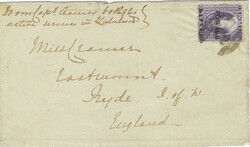 From Capt Creamer
active service in Zululand
Miss Creamer
Eastmount
Ryde I. of W
England